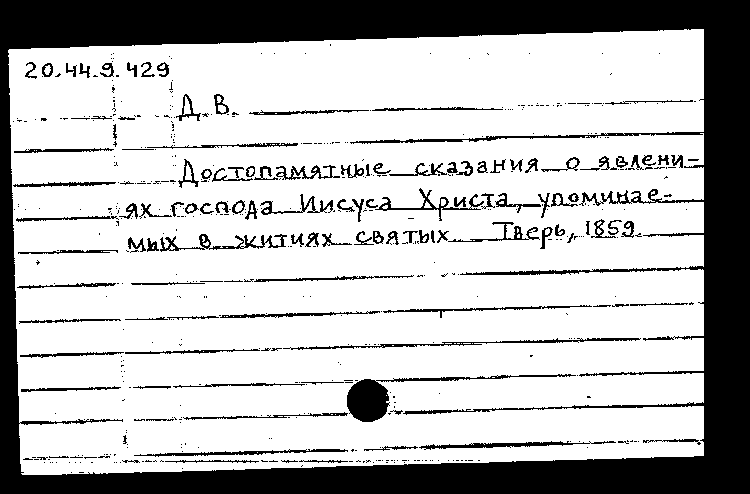 20.44.9.429
Д. В.
Достопамятные сказания о явлени-
ях господа Иисуса Христа, упоминае-
мых в житиях святых. Тверь, 1859.